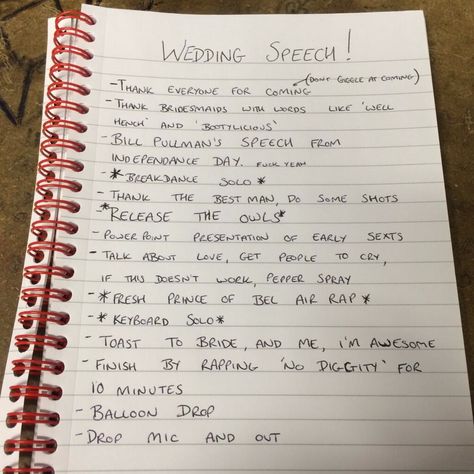 WEDDING SPEECH!
-THANK EVERYONE FOR COMING (DON'T GIGGLE AT COMING)
-THANK BRIDESMAIDS WITH WORDS LIKE 'WELL
HENCH' AND 'BOOTYLICIOUS'
-BILL PULLMAN'S SPEECH FROM
INDEPENDANCE DAY. FUCK YEAH
-*BREAKDANCE SOLO*
-THANK THE BEST MAN, DO SOME SHOTS
-*RELEASE THE OWLS*
-POWERPOINT PRESENTATION OF EARLY SEXTS
-TALK ABOUT LOVE, GET PEOPLE TO CRY,
IF THIS DOESN'T WORK, PEPPER SPRAY
-*FRESH PRINCE OF BEL AIR RAP*
-*KEYBOARD SOLO*
-TOAST TO BRIDE, AND ME, I'M AWESOME
-FINISH BY RAPPING 'NO DIGGITY' FOR
10 MINUTES
-BALLOON DROP
-DROP MIC AND OUT